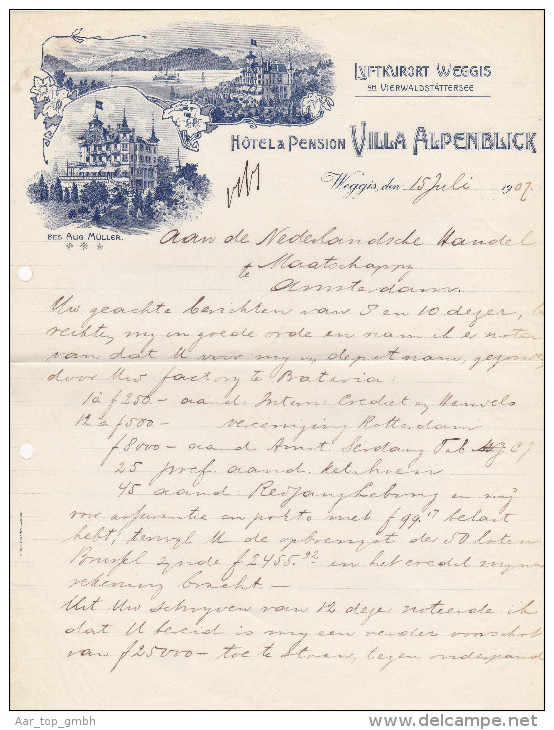 LUFTKURORT WEGGIS
AM VIERWALDSTÄTTERSEE
HÔTEL & PENSION VILLA ALPENBLICK
Weggis, den 15 Juli 1907.
BES. AUG. MÜLLER.
Aan de Nederlandsche Handel
te Maatschappy
Amsterdam.
Uw geachte berichten van 3 en 10 dezer,
rechten my in goede orde en nam ik er nota
van dat U voor my in depot nam, gezon
door Uw factory te Batavia:
1 à f 250.- aand. Intern: Crediet en Handels
12 à f 500.- vereeniging Rotterdam
f 8000 - aand Amst. Serdang Tab Mij
25 pref. aand. Ketahoen
45 aand. Redjang Lebong en my
voor assurantie en porto met f 99.17 belast
hebt, terwyl U de opbrengst der 50 loten
Brussel zynde f 2455.92 in het credit myner
rekening bracht. -
Uit Uw schryven van 12 dezer noteerde ik
dat U bereid is my een verder voorschot
van f 25000 - toe te staan, tegen onderpand
Aar_top_gmbh